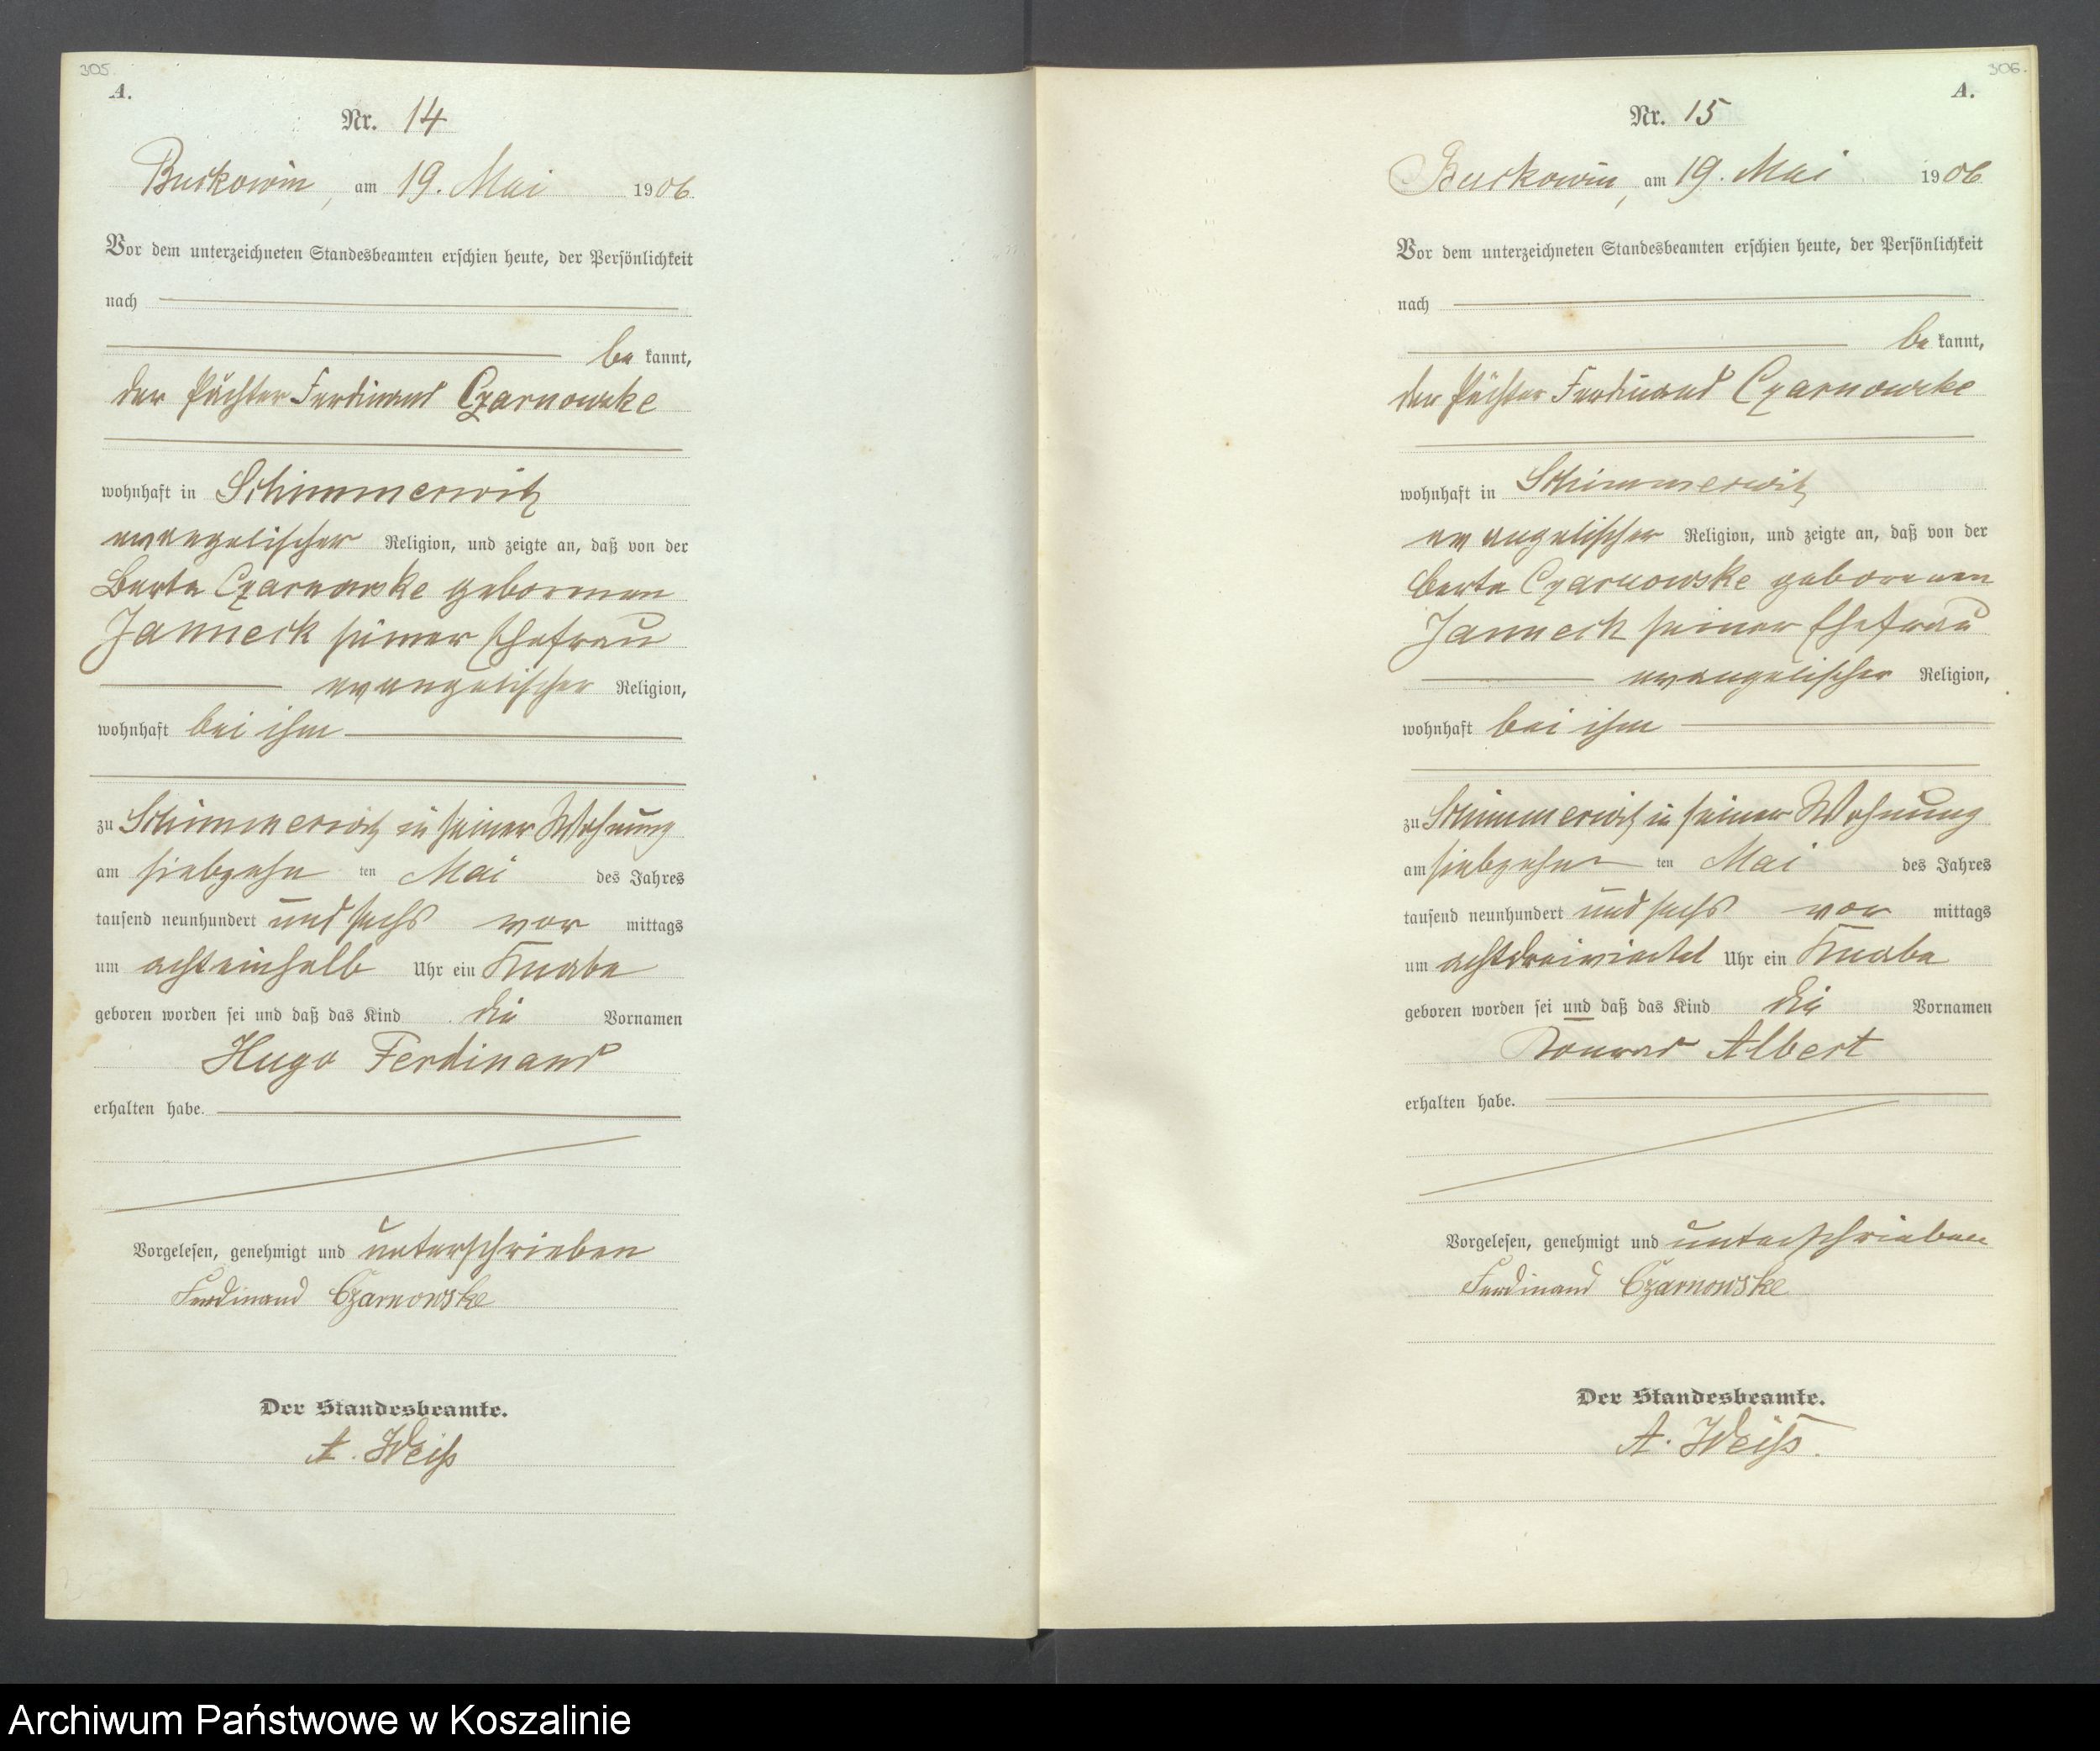 305.
A.
Nr. 14
Buckowin, am 19. Mai 1906
Vor dem unterzeichneten Standesbeamten erschien heute, der Persönlichkeit
nach
be kannt,
der Pächter Ferdinand Czarnowske
wohnhaft in Schimmerwitz
evangelischer Religion, und zeigte an, daß von der
Berta Czarnowske geborenen
Janneck seiner Ehefrau
evangelischer Religion,
wohnhaft bei ihm
zu Schimmerwitz in seiner Wohnung
am siebzehn ten Mai des Jahres
tausend neunhundert und sechs vor mittags
um achteinhalb Uhr ein Knabe
geboren worden sei und daß das Kind die Vornamen
Hugo Ferdinand
erhalten habe.
Vorgelesen, genehmigt und unterschrieben
Ferdinand Czarnowske
Der Standesbeamte.
A. Weiß
306.
A.
Nr. 15
Buckowin, am 19. Mai 1906
Vor dem unterzeichneten Standesbeamten erschien heute, der Persönlichkeit
nach
be kannt,
der Pächter Ferdinand Czarnowske
wohnhaft in Schimmerwitz
evangelischer Religion, und zeigte an, daß von der
Berta Czarnowske geborenen
Janneck seiner Ehefrau
evangelischer Religion,
wohnhaft bei ihm
zu Schimmerwitz in seiner Wohnung
am siebzehn ten Mai des Jahres
tausend neunhundert und sechs vor mittags
um achtdreiviertel Uhr ein Knabe
geboren worden sei und daß das Kind die Vornamen
Konrad Albert
erhalten habe.
Vorgelesen, genehmigt und unterschrieben
Ferdinand Czarnowske
Der Standesbeamte.
A. Weiß.
Archiwum Państwowe w Koszalinie